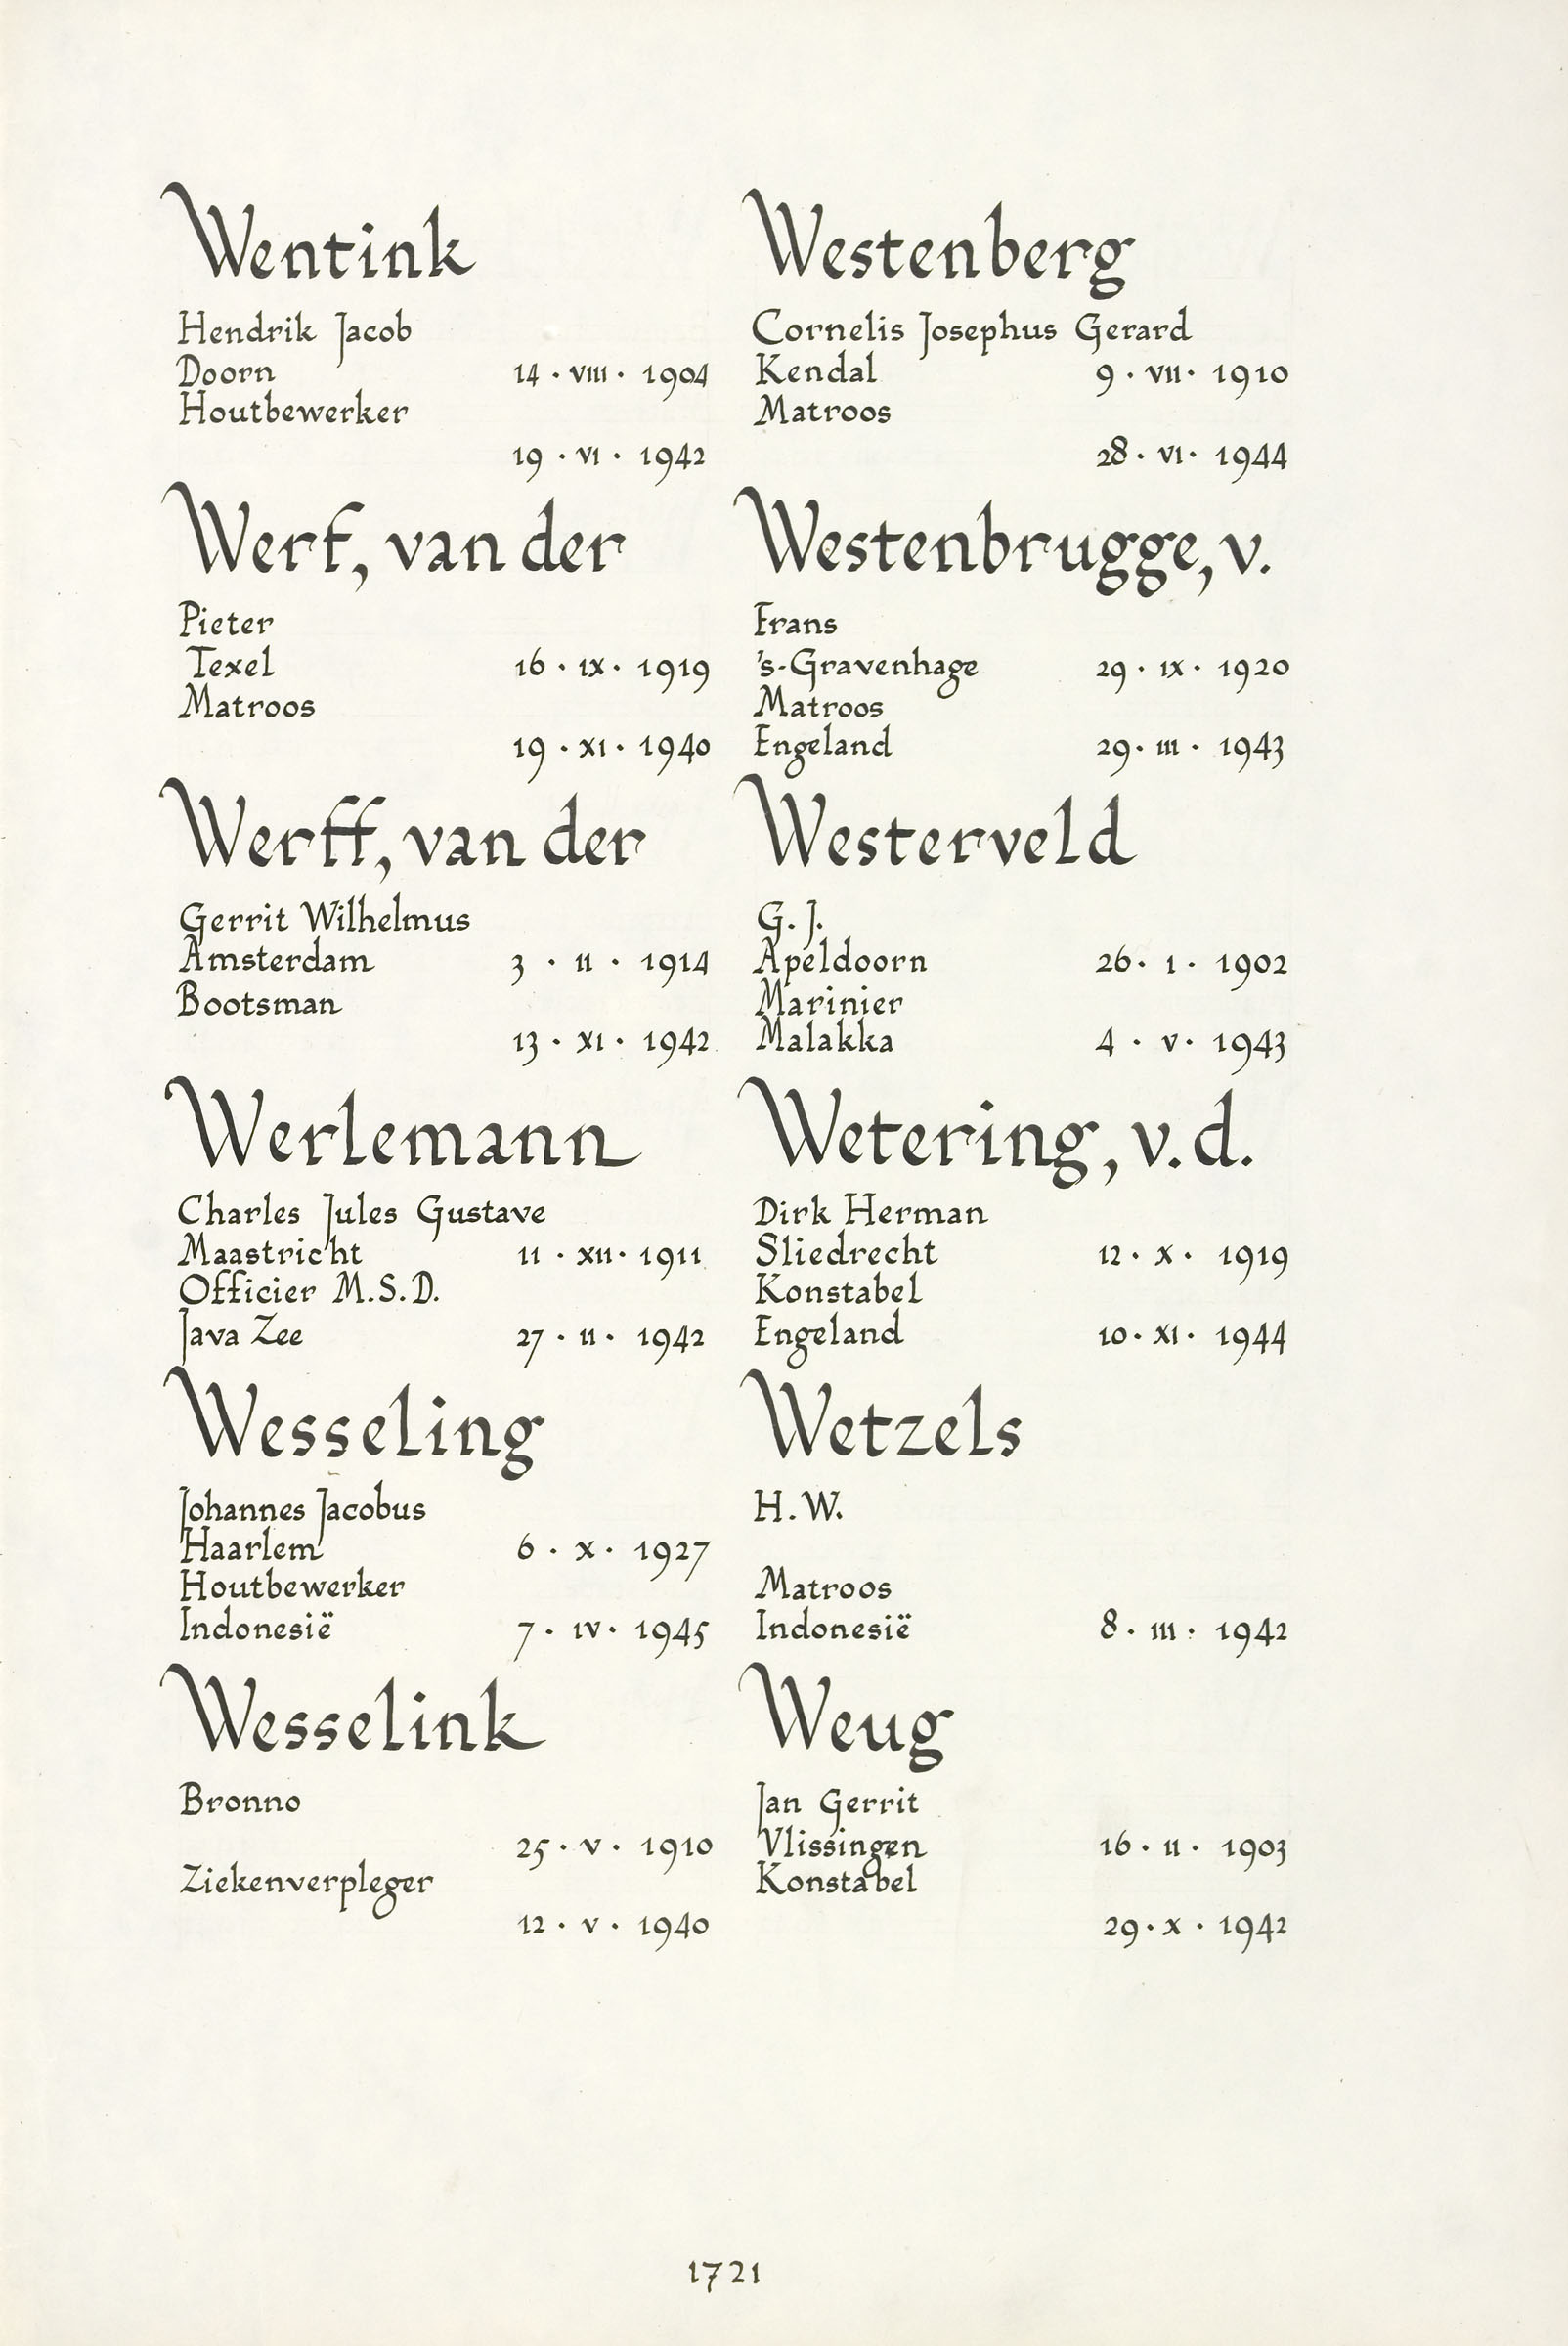 Wentink
Hendrik Jacob
Doorn 14 · VIII · 1904
Houtbewerker
19 · VI · 1942
Werf, van der
Pieter
Texel 16 · IX · 1919
Matroos
19 · XI · 1940
Werff, van der
Gerrit Wilhelmus
Amsterdam 3 · II · 1914
Bootsman
13 · XI · 1942
Werlemann
Charles Jules Gustave
Maastricht 11 · XII · 1911
Officier M.S.D.
Java Zee 27 · II · 1942
Wesseling
Johannes Jacobus
Haarlem 6 · X · 1927
Houtbewerker
Indonesië 7 · IV · 1945
Wesselink
Bronno
25 · V · 1910
Ziekenverpleger
12 · V · 1940
Westenberg
Cornelis Josephus Gerard
Kendal 9 · VII · 1910
Matroos
28 · VI · 1944
Westenbrugge, v.
Frans
's-Gravenhage 29 · IX · 1920
Matroos
Engeland 29 · III · 1943
Westerveld
G. J.
Apeldoorn 26 · I · 1902
Marinier
Malakka 4 · V · 1943
Wetering, v. d.
Dirk Herman
Sliedrecht 12 · X · 1919
Konstabel
Engeland 10 · XI · 1944
Wetzels
H. W.
Matroos
Indonesië 8 · III · 1942
Weug
Jan Gerrit
Vlissingen 16 · II · 1903
Konstabel
29 · X · 1942
1721